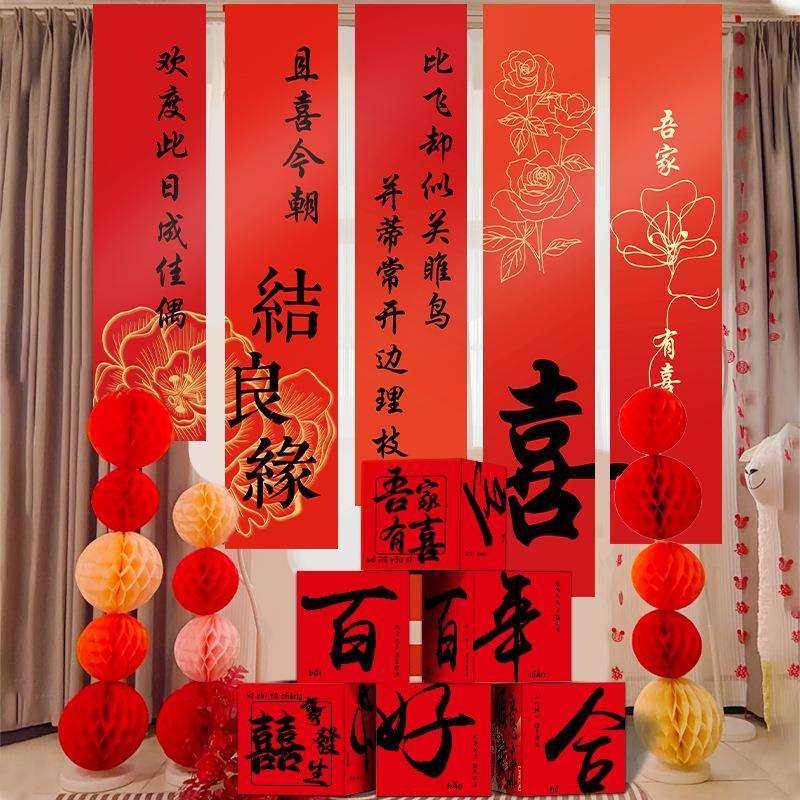 欢度此日成佳偶
且喜今朝
結良緣
比飞却似关雎鸟
并蒂常开边理枝
喜
吾家
有喜
吾家
有喜
百
bǎi
百
年
囍
事發生
好
hǎo
合
hé